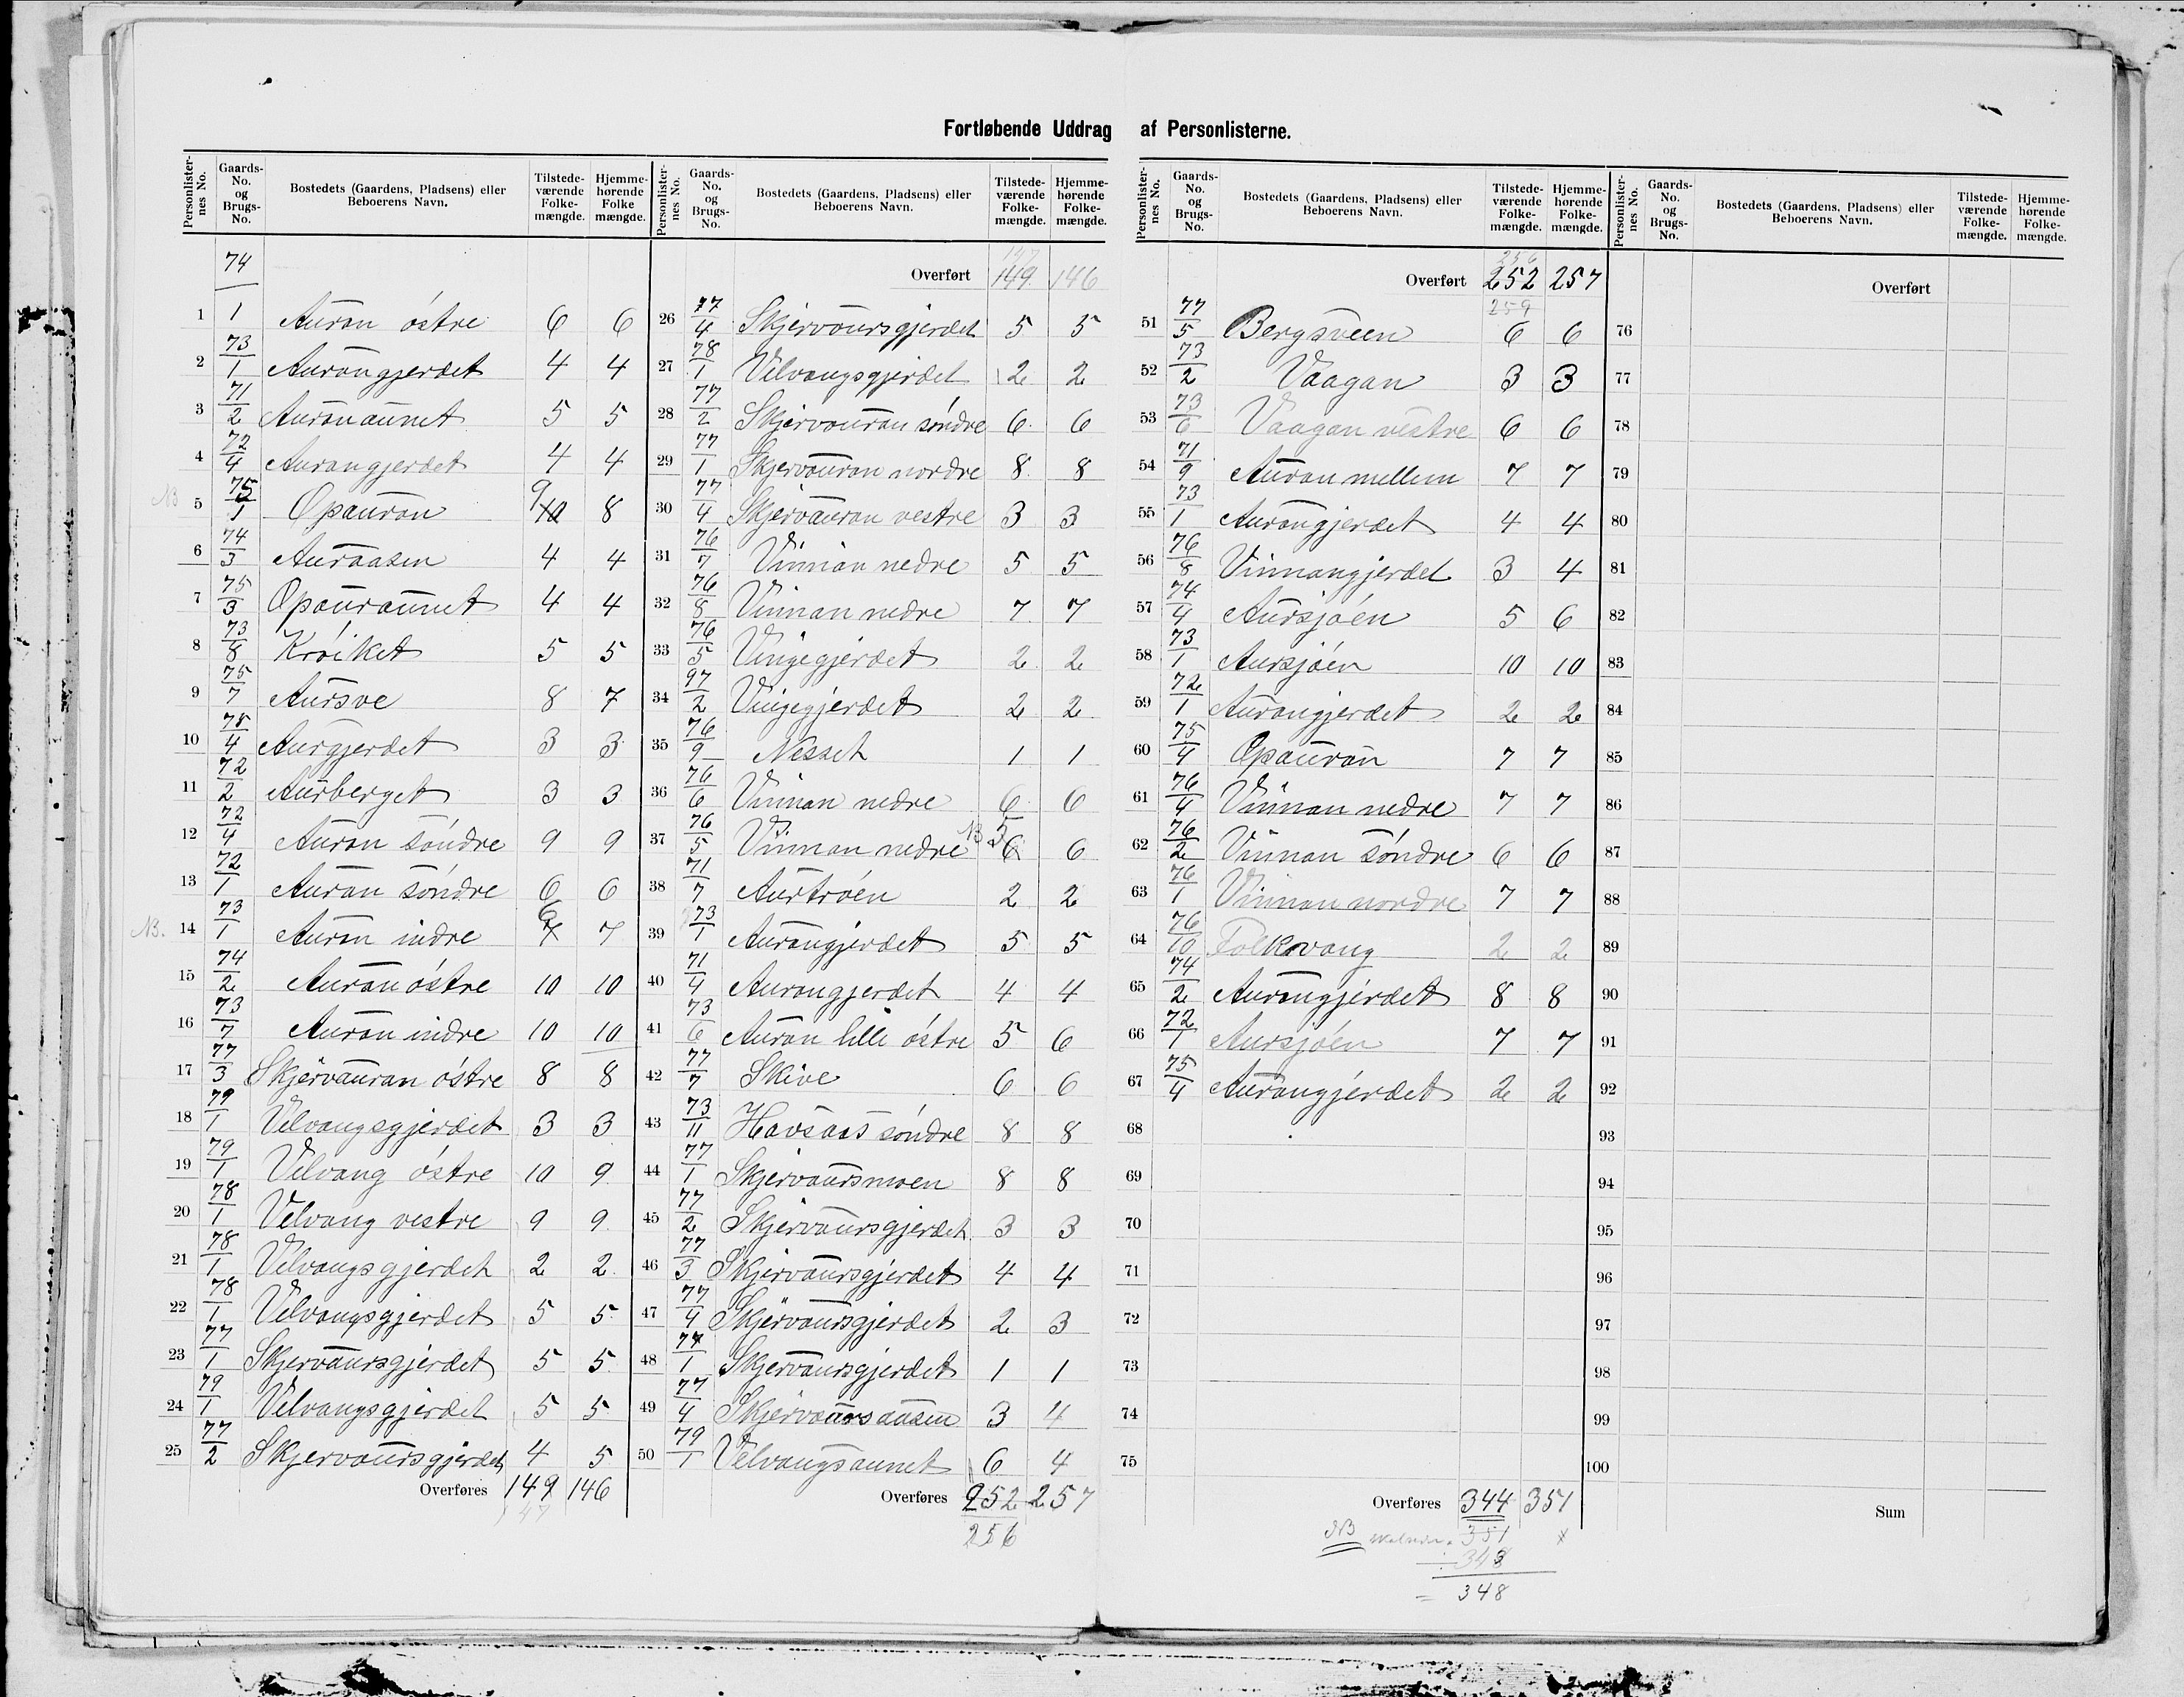 Fortløbende Uddrag af Personlisterne.
Personlisternes No. Gaards-No. og Brugs-No. Bostedets (Gaardens, Pladsens) eller Beboerens Navn. Tilstedeværende Folkemængde. Hjemmehørende Folke mængde.
74
1 1 Auran östre 6 6
2 73/1 Aurangjerdet 4 4
3 71/2 Auranaunet 5 5
4 72/4 Aurangjerdet 4 4
NB 5 75/1 Opauran 9 10 8
6 74/3 Auraasen 4 4
7 75/3 Opauraunet 4 4
8 73/8 Kröiket 5 5
9 75/7 Aursve 8 7
10 78/4 Aurgjerdet 3 3
11 72/2 Aurberget 3 3
12 72/4 Auran söndre 9 9
13 72/1 Auran söndre 6 6
NB. 14 73/1 Auran indre 6 7 7
15 74/2 Auran östre 10 10
16 73/7 Auran indre 10 10
17 77/3 Skjervauran östre 8 8
18 79/1 Velvangsgjerdet 3 3
19 79/1 Velvang östre 10 9
20 78/1 Velvang vestre 9 9
21 78/1 Velvangsgjerdet 2 2
22 78/1 Velvangsgjerdet 5 5
23 77/1 Skjervaursgjerdet 5 5
24 79/1 Velvangsgjerdet 5 5
25 77/2 Skjervaursgjerdet 4 5
Overføres 149 146
147
Personlisternes No. Gaards-No. og Brugs-No. Bostedets (Gaardens, Pladsens) eller Beboerens Navn. Tilstedeværende Folkemængde. Hjemmehørende Folkemængde.
147
Overført 149 146
26 77/4 Skjervaursgjerdet 5 5
27 78/1 Velvangsgjerdet 2 2
28 77/2 Skjervauran söndre 6 6
29 77/1 Skjervauran nordre 8 8
30 77/4 Skjervauran vestre 3 3
31 76/7 Vinnan nedre 5 5
32 76/8 Vinnan nedre 7 7
33 76/5 Vingegjerdet 2 2
34 97/2 Vingegjerdet 2 2
35 76/9 Nesset 1 1
36 76/6 Vinnan nedre 6 6
37 76/5 Vinnan nedre NB 5 6 6
38 71/7 Aurtröen 2 2
39 73/1 Aurangjerdet 5 5
40 71/4 Aurangjerdet 4 4
41 73/6 Auran lille östre 5 6
42 77/7 Skive 6 6
43 73/11 Havsaas söndre 8 8
44 77/1 Skjervaursmoen 8 8
45 77/2 Skjervaursgjerdet 3 3
46 77/3 Skjervaursgjerdet 4 4
47 77/4 Skjervaursgjerdet 2 3
48 77/1 Skjervaursgjerdet 1 1
49 77/4 Skjervaursaasen 3 4
50 79/1 Velvangsaunet 6 4
Overføres 252 257
256
Personlisternes No. Gaards-No. og Brugs-No. Bostedets (Gaardens, Pladsens) eller Beboerens Navn. Tilstedeværende Folkemængde. Hjemmehørende Folkemængde.
256
Overført 252 257
259
51 77/5 Bergsveen 6 6
52 73/2 Vaagan 3 3
53 73/6 Vaagan vestre 6 6
54 71/9 Auran mellem 7 7
55 73/1 Aurangjerdet 4 4
56 76/8 Vinnangjerdet 3 4
57 74/4 Aursjöen 5 6
58 73/1 Aursjöen 10 10
59 72/1 Aurangjerdet 2 2
60 75/4 Opauran 7 7
61 76/4 Vinnan nedre 7 7
62 76/2 Vinnan söndre 6 6
63 76/1 Vinnan nordre 7 7
64 76/10 Folkvang 2 2
65 74/2 Aurangjerdet 8 8
66 72/1 Aursjöen 7 7
67 75/4 Aurangjerdet 2 2
68
69
70
71
72
73
74
75
Overføres 344 351
NB 351 x
: 343
= 348
Personlisternes No. Gaards-No. og Brugs-No. Bostedets (Gaardens, Pladsens) eller Beboerens Navn. Tilstedeværende Folkemængde. Hjemmehørende Folkemængde.
Overført
76
77
78
79
80
81
82
83
84
85
86
87
88
89
90
91
92
93
94
95
96
97
98
99
100
Sum